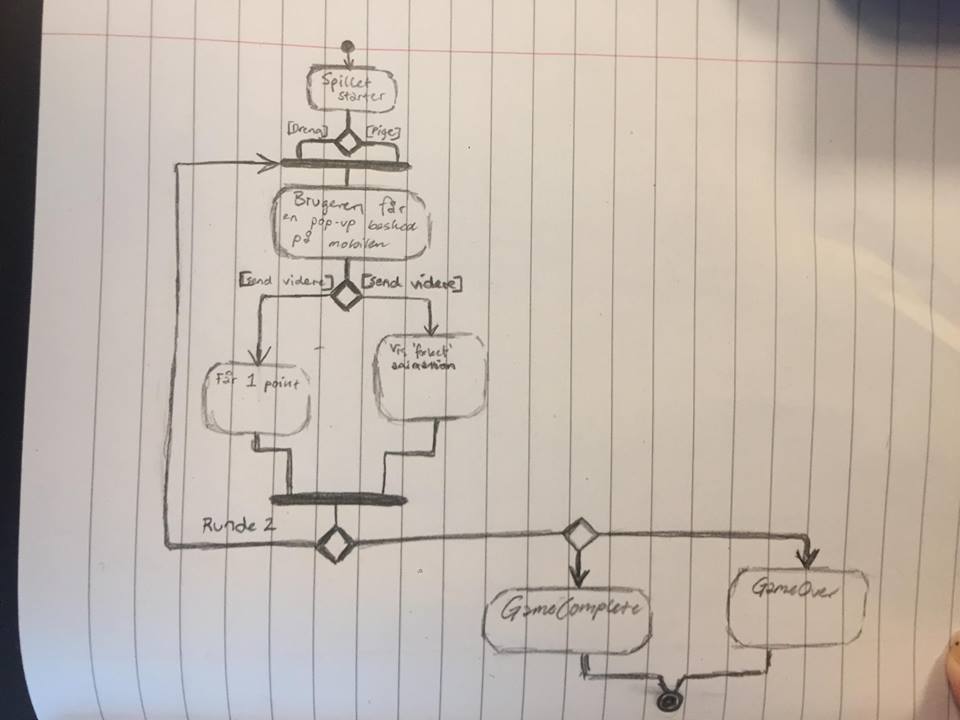 Spillet
starter
[Dreng] [Pige]
Brugeren får
en pop-up besked
på mobilen
[send videre] [send videre]
Vis 'forkert'
animation
Får 1 point
Runde 2
GameComplete
GameOver